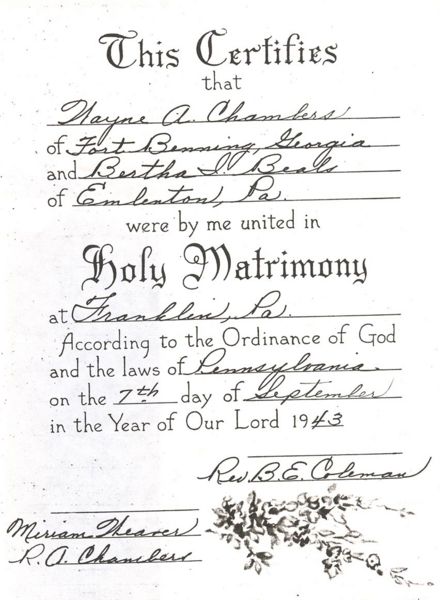 This Certifies
that
Wayne A. Chambers
of Fort Benning, Georgia
and Bertha I. Beals
of Emlenton, Pa.
were by me united in
Holy Matrimony
at Franklin, Pa.
According to the Ordinance of God
and the laws of Pennsylvania.
on the 7th day of September
in the Year of Our Lord 1943
Rev. B. E. Coleman
Miriam Weaver
R. A. Chambers